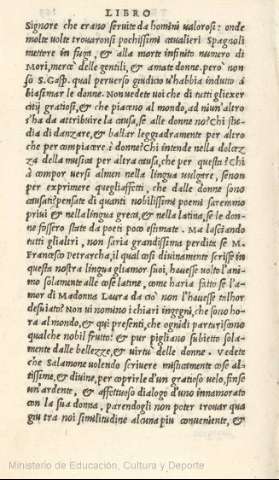 LIBRO
Signore che erano seruite da homini valorosi: onde
molte volte trouaronsi pochissimi caualieri Spagnoli
mettere in fuga, & alla morte infinito numero di
Mori, mercè delle gentili, & amate donne. però non
sò S. Gasp. qual peruerso giudicio v'habbia indutto à
biasimar le donne. Non vedete voi che di tutti gli exer
citij gratiosi, & che piaceno al mondo, ad niun'altro
s'ha da attribuire la causa, se alle donne no? Chi stu
dia di danzare, & ballar leggiadramente per altro
che per compiacere à donne? Chi intende nella dolcez
za della musica per altra causa, che per questa? Chi
à compor versi almen nella lingua vulgare, senon
per exprimere quegli affetti, che dalle donne sono
causati? pensate di quanti nobilissimi poemi saremmo
priui & nella lingua greca, & nella latina, se le don-
ne fossero state da poeti poco estimate. Ma lasciando
tutti gli altri, non saria grandissima perdita se M.
Francesco Petrarcha, il qual cosi diuinamente scrisse in
questa nostra lingua gli amor suoi, hauesse volto l'ani
mo solamente alle cose latine, come haria fatto se l'a-
mor di Madonna Laura da ciò non l'hauesse talhor
desuiato? Non vi nomino i chiari ingegni, che sono ho-
ra al mondo, & qui presenti, che ogni dì parturiscono
qualche nobil frutto: & pur pigliano subietto sola-
mente dalle bellezze, & virtù delle donne. Vedete
che Salamone volendo scriuere misticamente cose al-
tissime, & diuine, per coprirle d'un gratioso velo, finse
vn'ardente, & affettuoso dialogo d'uno innamorato
con la sua donna, parendogli non poter trouar qua
giu tra noi similitudine alcuna piu conueniente, &
Ministerio de Educación, Cultura y Deporte